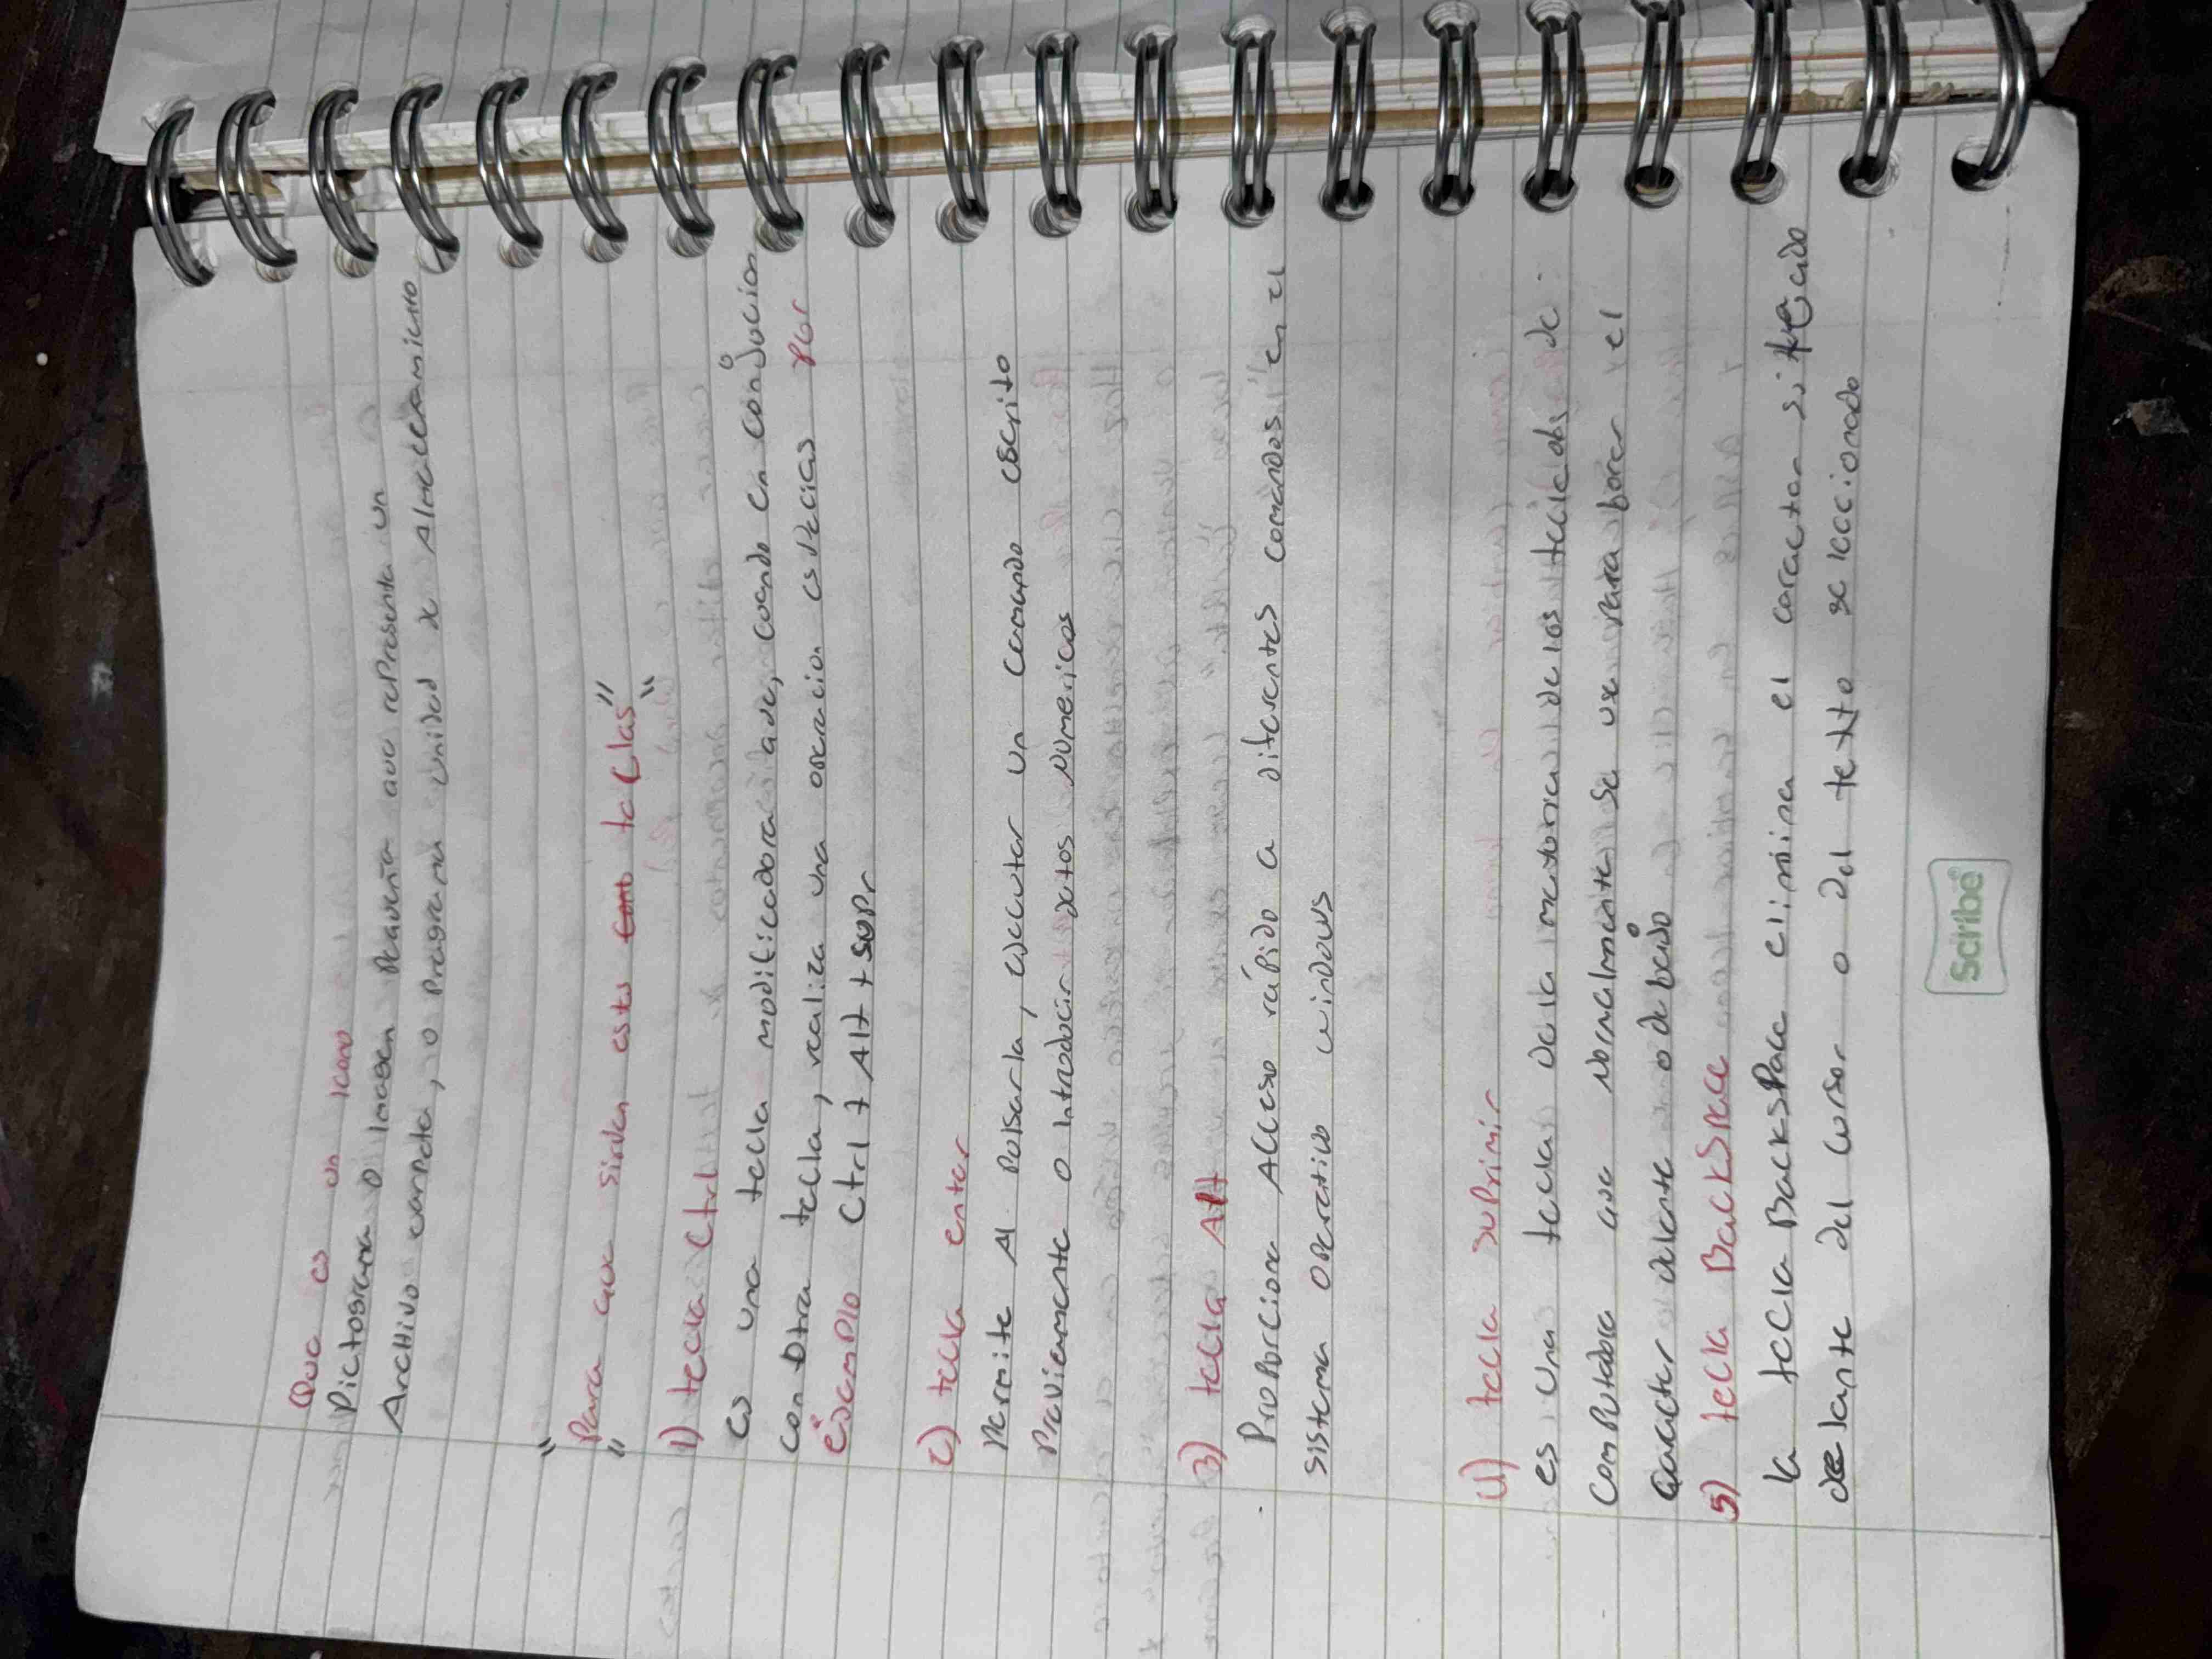 Que es un icono
Pictograma o imagen pequeña que representa un
Archivo carpeta, o Programa unidad de Almacenamiento
" Para que sirven estas teclas "
1) tecla Ctrl
es una tecla modificadora que, cuando en conjucion
con Otra tecla, realiza una operacion especias por
ejemplo Ctrl + Alt + SUPr
2) tecla enter
Permite Al Pulsarla, ejecutar un comando escrito
Previemente o introducir datos Numericos
3) tecla Alt
Proporciona Acceso rápido a diferentes comandos en el
sistema operativo windows
4) tecla suprimir
es una tecla de la mayoria de los teclados de
Computadora que Normalmente se usa para borar el
caracter delante o debajo
5) tecla BackSpace
la tecla BacksPace elimina el caracter sitecido
delante del cursor o del texto seleccionado
Scribe®